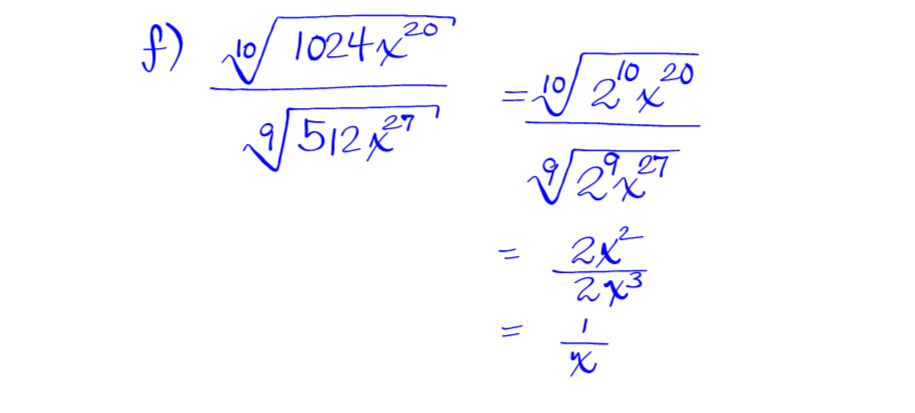 f) \frac{\sqrt[10]{1024x^{20}}}{\sqrt[9]{512x^{27}}} = \frac{\sqrt[10]{2^{10}x^{20}}}{\sqrt[9]{2^{9}x^{27}}}
= \frac{2x^{2}}{2x^{3}}
= \frac{1}{x}